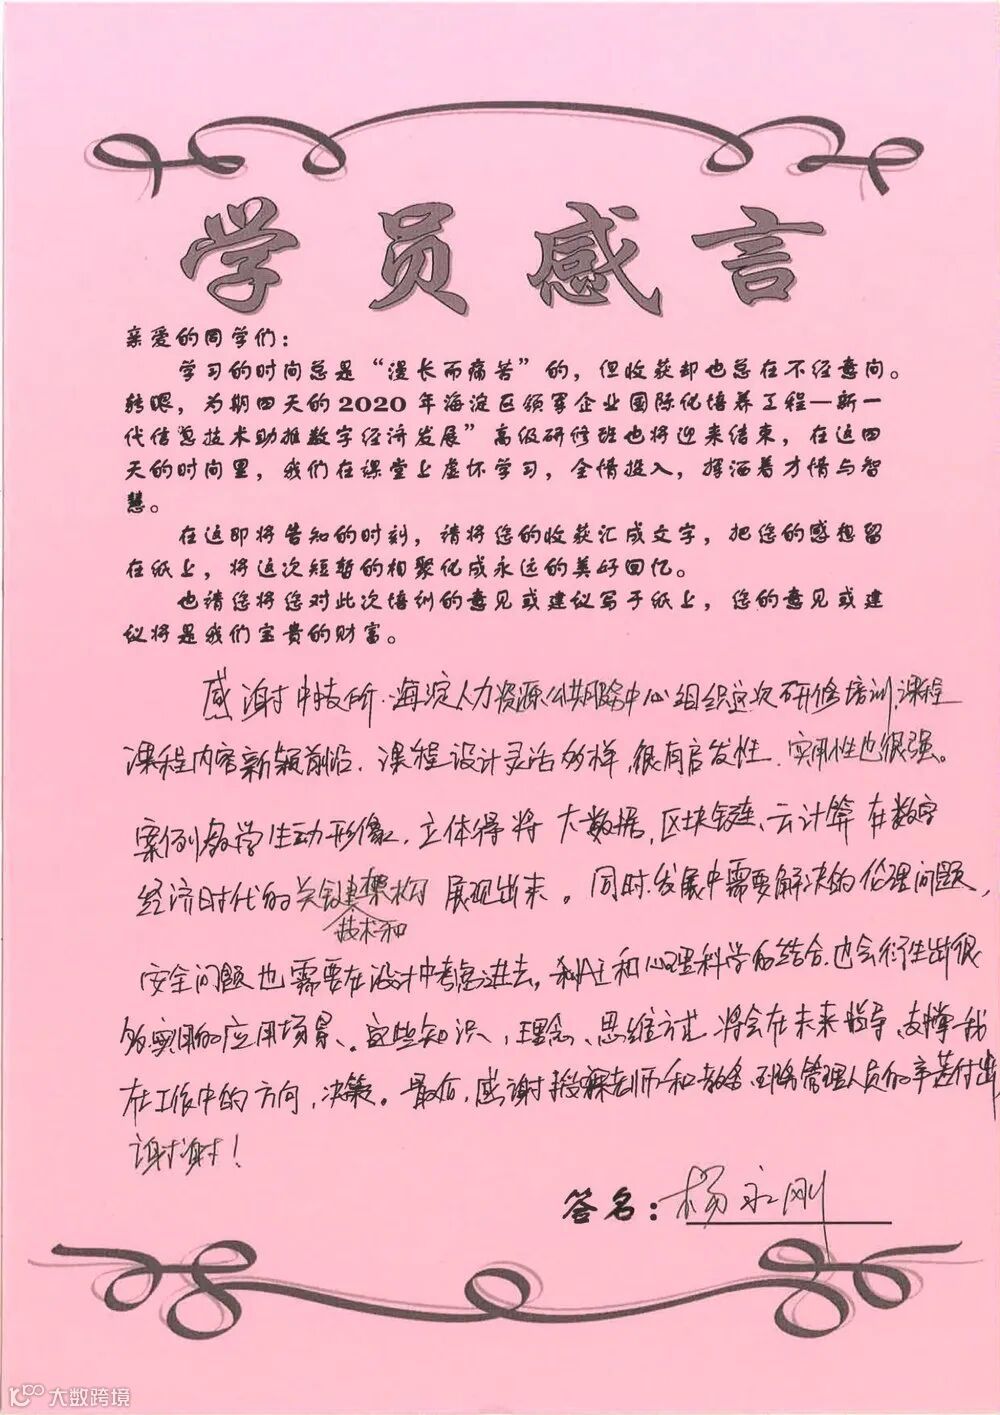 学员感言
亲爱的同学们：
学习的时间总是“漫长而痛苦”的，但收获却也总在不经意间。
转眼，为期四天的2020年海淀区领军企业国际化培养工程—新一
代信息技术助推数字经济发展”高级研修班也将迎来结束，在这四
天的时间里，我们在课堂上虚怀学习，全情投入，挥洒着才情与智
慧。
在这即将告知的时刻，请将您的收获汇成文字，把您的感想留
在纸上，将这次短暂的相聚化成永远的美好回忆。
也请您将您对此次培训的意见或建议写于纸上，您的意见或建
议将是我们宝贵的财富。
感谢中技所·海淀人力资源公共服务中心组织这次研修培训，课程
课程内容新颖前沿、课程设计灵活多样，很有启发性、实用性也很强。
案例教学生动形象，立体得将大数据，区块链、云计算在数字
经济时代的关键架构展现出来。同时，发展中需要解决的伦理问题，
技术和
安全问题也需要在设计中考虑进去，和心理科学的结合，也会衍生出很
多实用的应用场景。这些知识、理念、思维方式将会在未来指导、支撑我
在工作中的方向、决策。最后，感谢授课老师和教务、班务管理人员的辛苦付出
谢谢！
签名：杨永刚
大数跨境